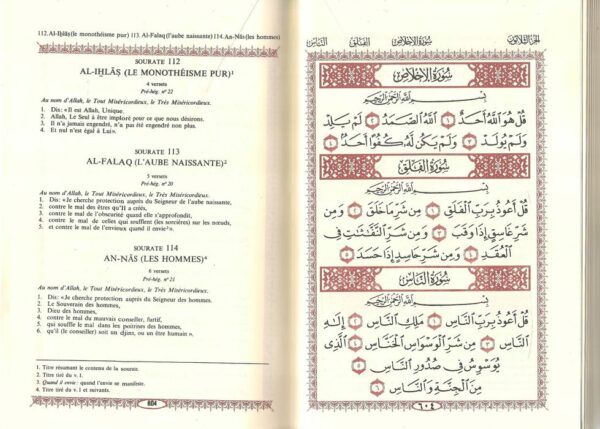 112. Al-Iḫlāṣ (le monothéisme pur) 113. Al-Falaq (l'aube naissante) 114. An-Nās (les hommes)
SOURATE 112
AL-IḪLĀṢ (LE MONOTHÉISME PUR)¹
4 versets
Pré-hég. n° 22
Au nom d'Allah, le Tout Miséricordieux, le Très Miséricordieux.
1. Dis: «Il est Allah, Unique.
2. Allah, Le Seul à être imploré pour ce que nous désirons.
3. Il n'a jamais engendré, n'a pas été engendré non plus.
4. Et nul n'est égal à Lui».
SOURATE 113
AL-FALAQ (L'AUBE NAISSANTE)²
5 versets
Pré-hég. n° 20
Au nom d'Allah, le Tout Miséricordieux, le Très Miséricordieux.
1. Dis: «Je cherche protection auprès du Seigneur de l'aube naissante,
2. contre le mal des êtres qu'Il a créés,
3. contre le mal de l'obscurité quand elle s'approfondit,
4. contre le mal de celles qui soufflent (les sorcières) sur les nœuds,
5. et contre le mal de l'envieux quand il envie³».
SOURATE 114
AN-NĀS (LES HOMMES)⁴
6 versets
Pré-hég. n° 21
Au nom d'Allah, le Tout Miséricordieux, le Très Miséricordieux.
1. Dis: «Je cherche protection auprès du Seigneur des hommes,
2. Le Souverain des hommes,
3. Dieu des hommes,
4. contre le mal du mauvais conseiller, furtif,
5. qui souffle le mal dans les poitrines des hommes,
6. qu'il (le conseiller) soit un djinn, ou un être humain».
1. Titre résumant le contenu de la sourate.
2. Titre tiré du v. 1
3. Quand il envie: quand l'envie se manifeste.
4. Titre tiré du v. 1 et suivants.
604
الجزء الثلاثون سورة الإخلاص الفلق الناس
سُورَةُ الإِخْلَاصِ
بِسْمِ اللَّهِ الرَّحْمَٰنِ الرَّحِيمِ
قُلْ هُوَ اللَّهُ أَحَدٌ ١ اللَّهُ الصَّمَدُ ٢ لَمْ يَلِدْ
وَلَمْ يُولَدْ ٣ وَلَمْ يَكُن لَّهُ كُفُوًا أَحَدٌ ٤
سُورَةُ الْفَلَقِ
بِسْمِ اللَّهِ الرَّحْمَٰنِ الرَّحِيمِ
قُلْ أَعُوذُ بِرَبِّ الْفَلَقِ ١ مِن شَرِّ مَا خَلَقَ ٢ وَمِن
شَرِّ غَاسِقٍ إِذَا وَقَبَ ٣ وَمِن شَرِّ النَّفَّاثَاتِ فِي
الْعُقَدِ ٤ وَمِن شَرِّ حَاسِدٍ إِذَا حَسَدَ ٥
سُورَةُ النَّاسِ
بِسْمِ اللَّهِ الرَّحْمَٰنِ الرَّحِيمِ
قُلْ أَعُوذُ بِرَبِّ النَّاسِ ١ مَلِكِ النَّاسِ ٢ إِلَٰهِ
النَّاسِ ٣ مِن شَرِّ الْوَسْوَاسِ الْخَنَّاسِ ٤ الَّذِي
يُوَسْوِسُ فِي صُدُورِ النَّاسِ ٥
مِنَ الْجِنَّةِ وَالنَّاسِ ٦
٦٠٤